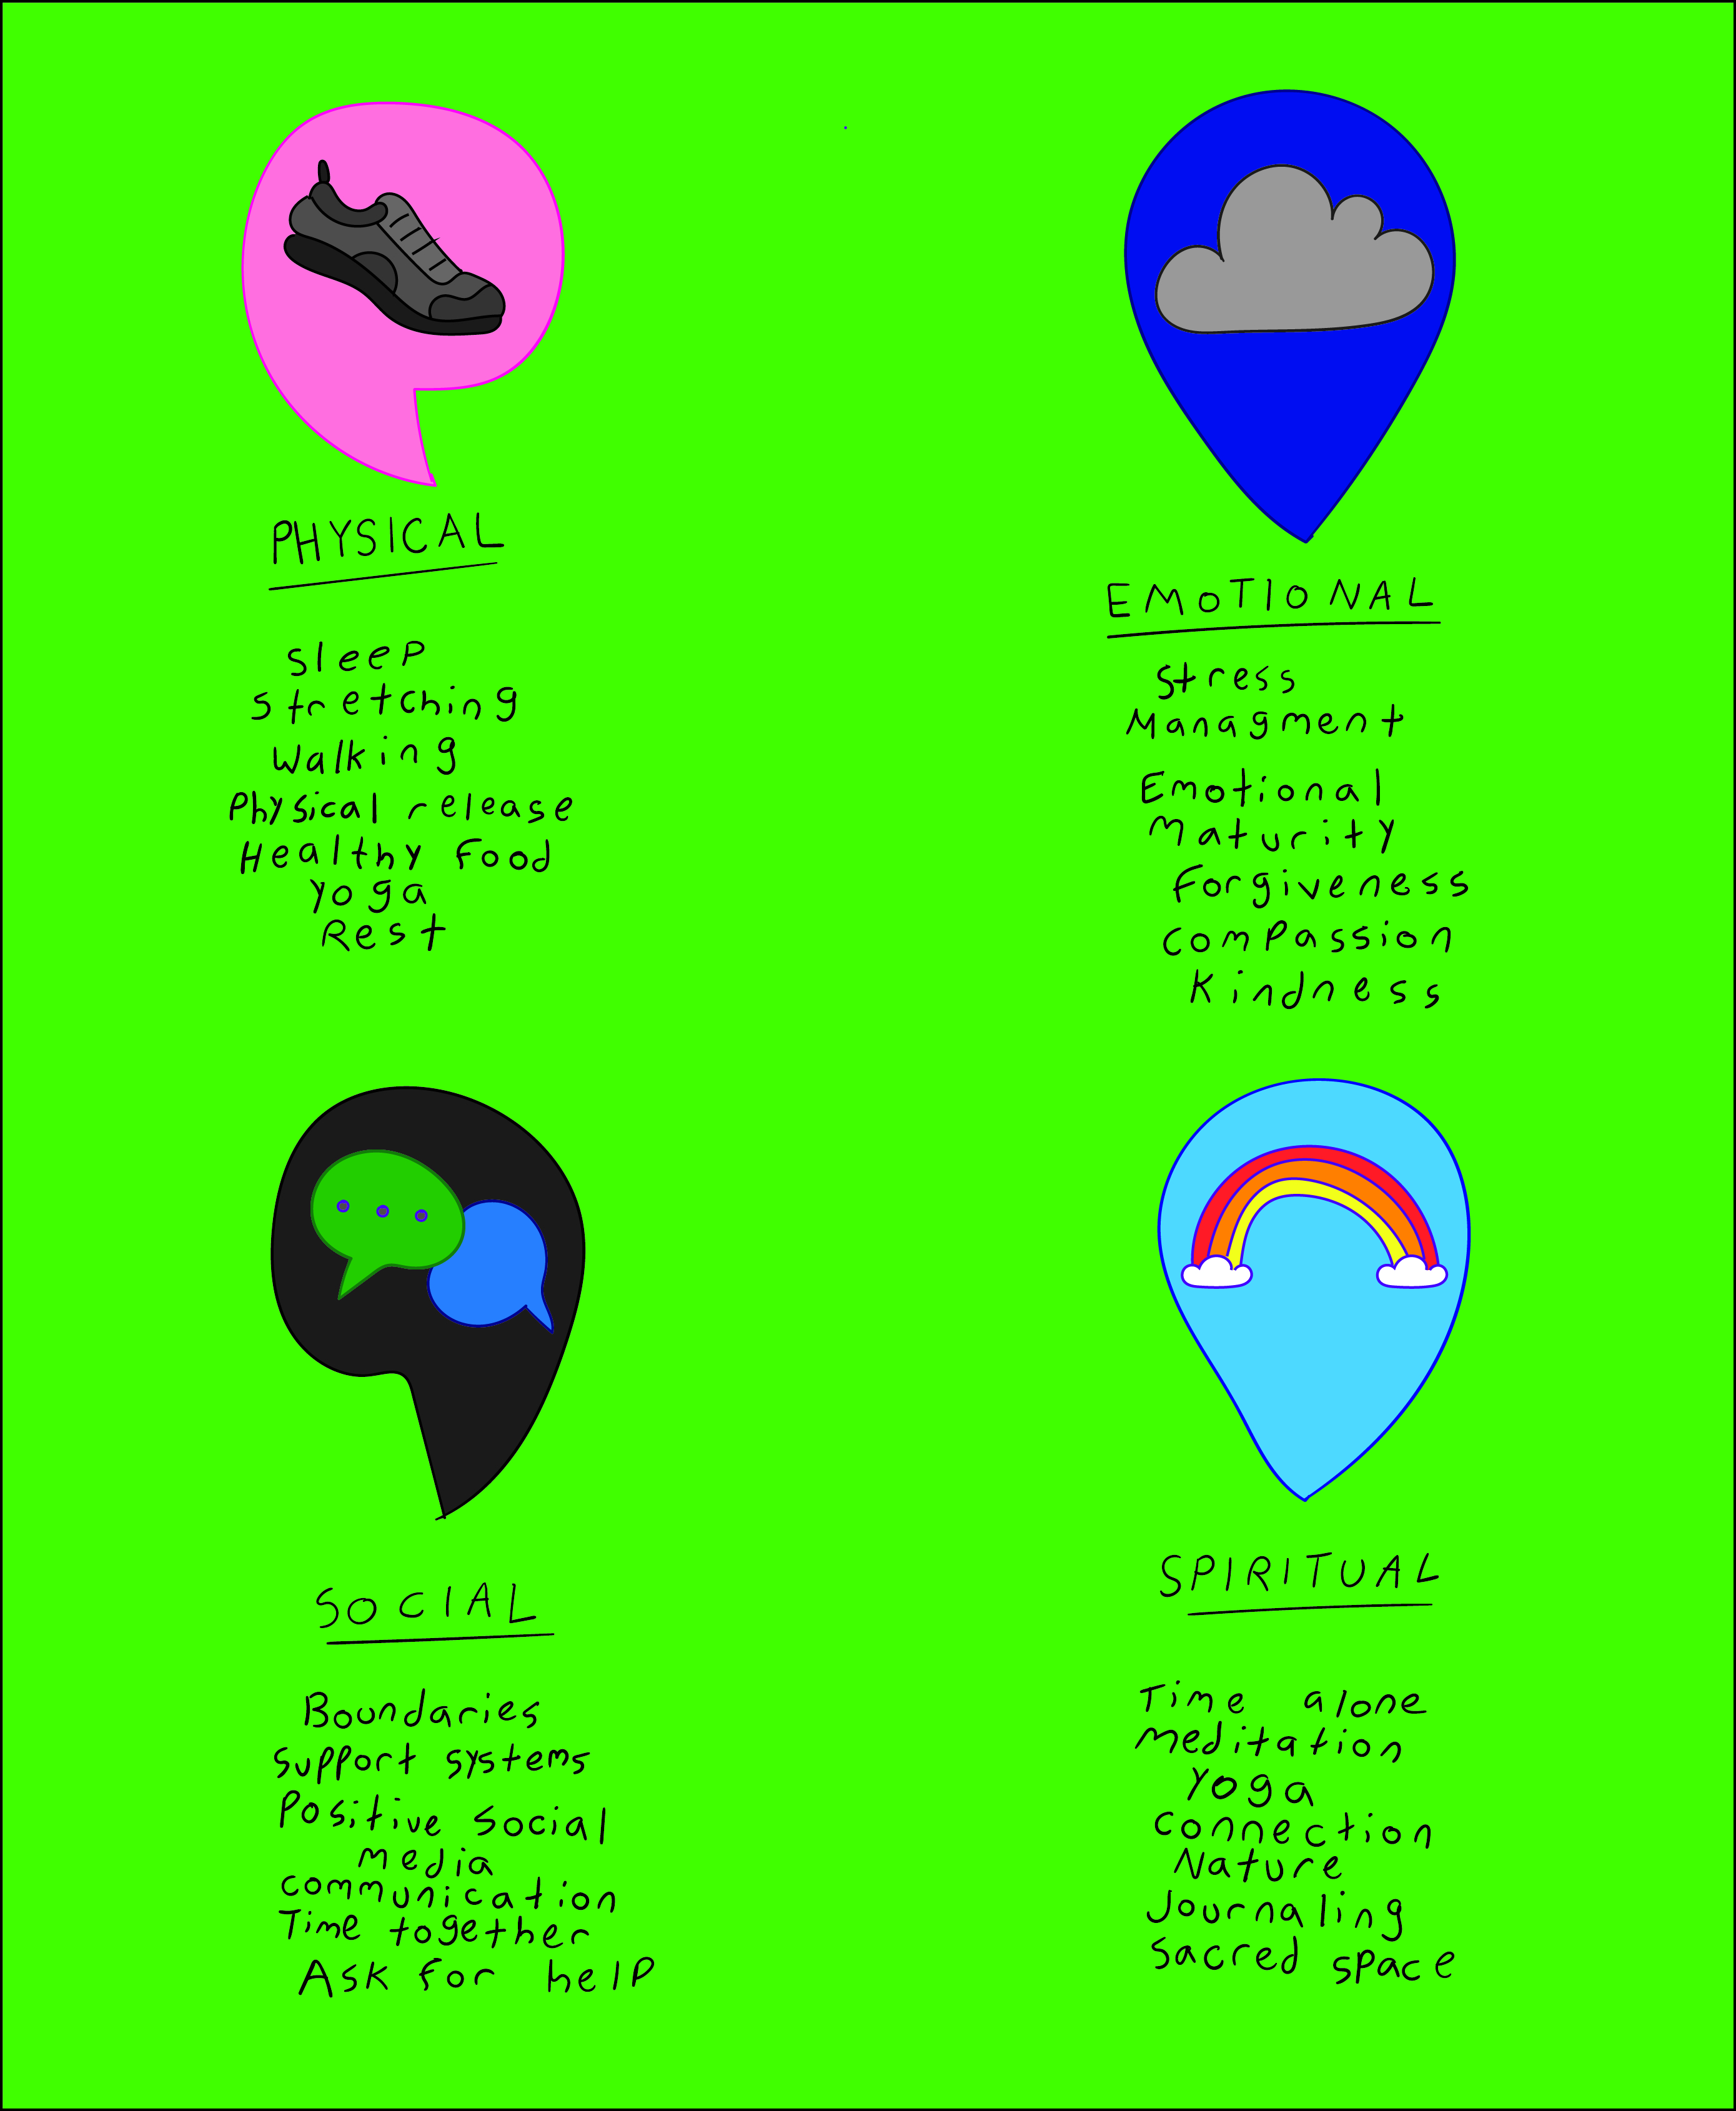 PHYSICAL
Sleep
Stretching
Walking
Physical release
Healthy food
Yoga
Rest
EMOTIONAL
Stress
Managment
Emotional
Maturity
Forgiveness
Compassion
Kindness
SOCIAL
Boundaries
Support systems
Positive social
media
communication
Time together
Ask for help
SPIRITUAL
Time alone
Meditation
Yoga
Connection
Nature
Journaling
Sacred space